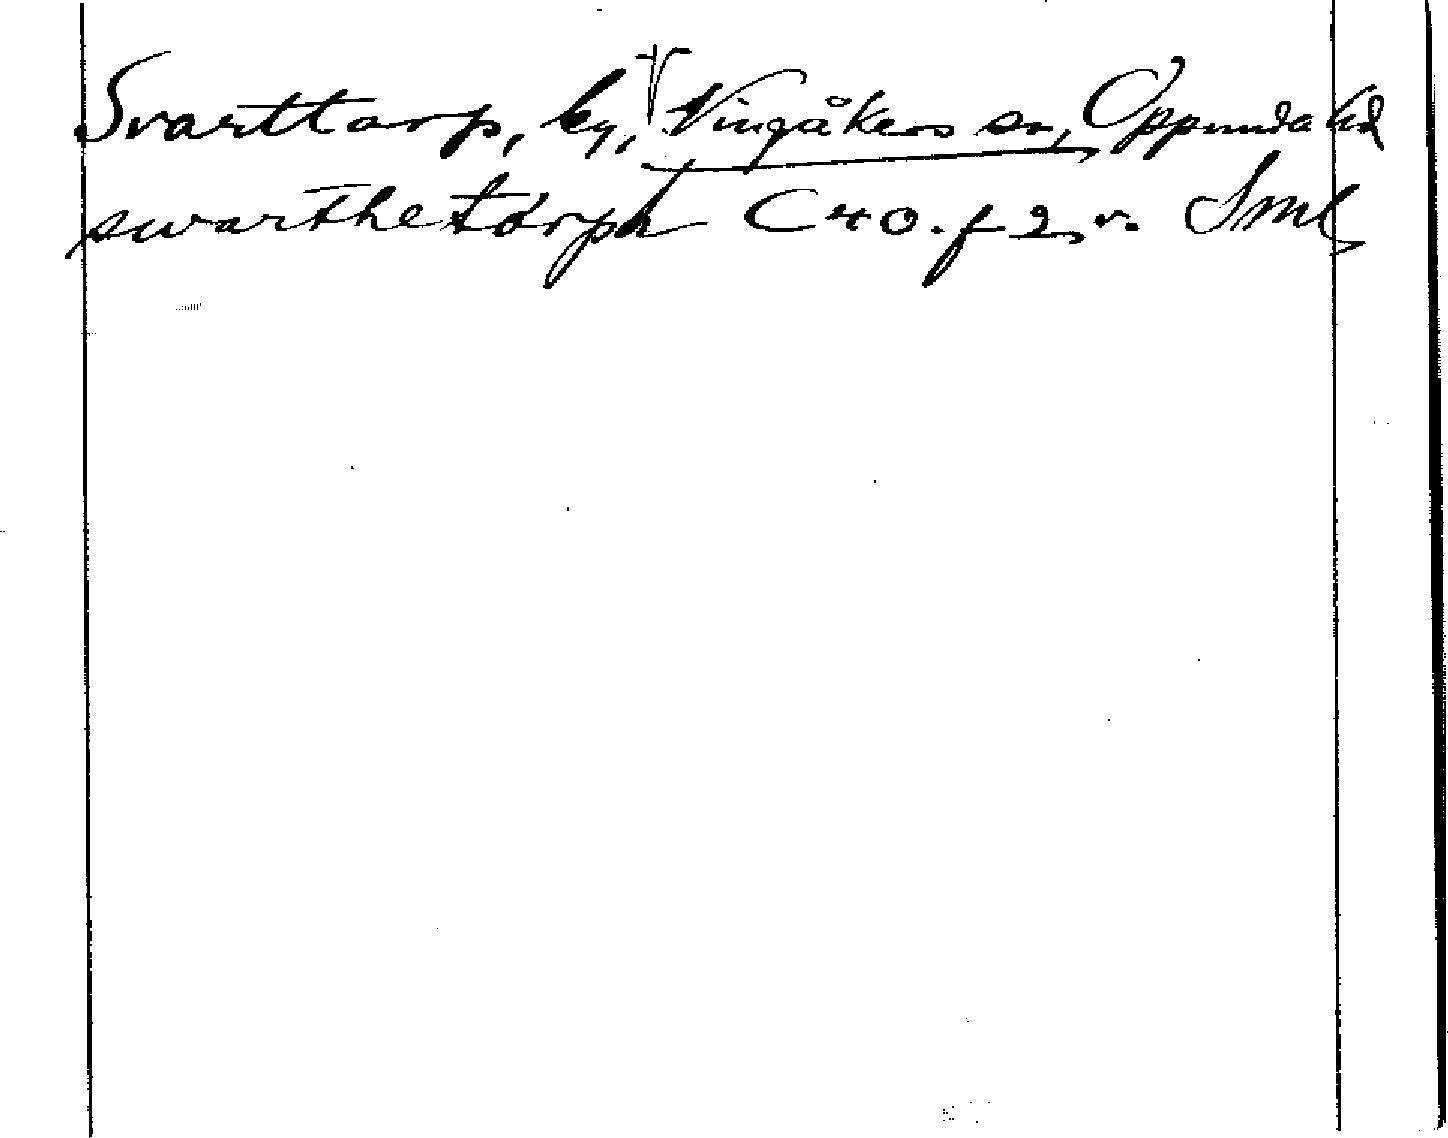 Svarttorp, by, V Vingåkers sn, Oppunda hd
swarthetorph C 40. f 2 v. Sml